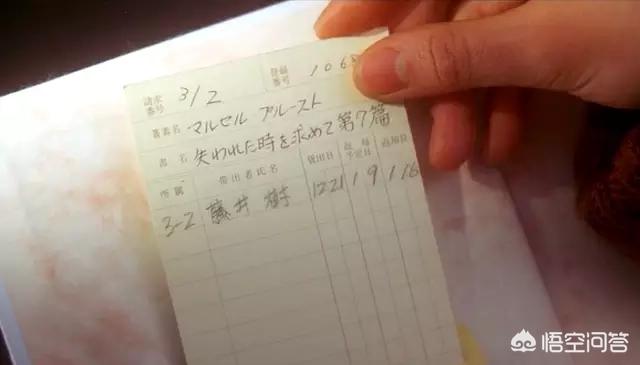 請求番号 312 登録番号 106
著者名 マルセル プルースト
書名 失われた時を求めて第7篇
所属 帯出者氏名 貸出日 返却予定日 返却日
3-2 藤井 樹 12 21 1 9 1 16
悟空问答